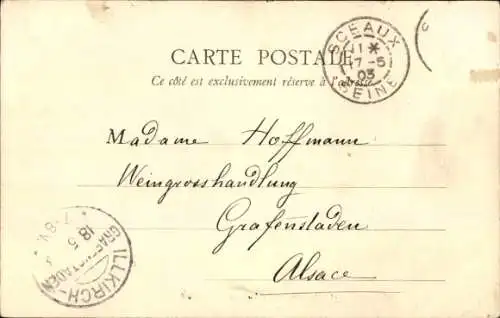 CARTE POSTALE
Ce côté est exclusivement réservé à l'adresse
SCEAUX
17-5
03
SEINE
Madame Hoffmann
Weingrosshandlung
Grafenstaden
Alsace
ILLKIRCH-
GRAFENSTADEN
18 5